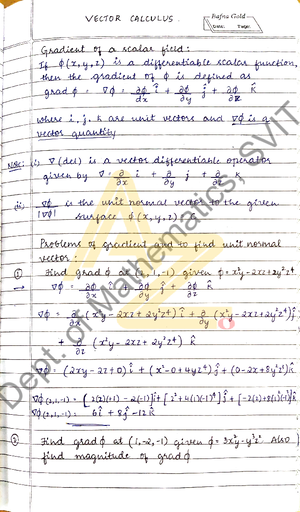 VECTOR CALCULUS.
Rafna Gold
Date: Page:
Gradient of a scalar field:
If ϕ(x,y,z) is a differentiable scalar function,
then the gradient of ϕ is defined as
grad ϕ = ∇ϕ = ∂ϕ/∂x î + ∂ϕ/∂y ĵ + ∂ϕ/∂z k̂
where i, j, k are unit vectors and ∇ϕ is a
vector quantity
Note: i) ∇ (del) is a vector differentiable operator
given by ∇ = ∂/∂x i + ∂/∂y j + ∂/∂z k
ii) ∇ϕ/|∇ϕ| is the unit normal vector to the given
surface ϕ(x,y,z) = C
Problems of gradient and to find unit normal
vector:
① Find grad ϕ at (2,1,-1) given ϕ = x²y-2xz+2y²z⁴
→ ∇ϕ = ∂ϕ/∂x î + ∂ϕ/∂y ĵ + ∂ϕ/∂z k̂
∇ϕ = ∂/∂x (x²y-2xz+2y²z⁴) î + ∂/∂y (x²y-2xz+2y²z⁴) ĵ
+ ∂/∂z (x²y-2xz+2y²z⁴) k̂
∇ϕ = (2xy-2z+0) î + (x²-0+4yz⁴) ĵ + (0-2x+8y²z³) k̂
∇ϕ(2,1,-1) = [2(2)(1)-2(-1)] î + [2²+4(1)(-1)⁴] ĵ + [-2(2)+8(1)(-1)³] k̂
∇ϕ(2,1,-1) = 6î + 8ĵ - 12k̂
② Find grad ϕ at (1,-2,-1) given ϕ = 3x²y-y³z². Also
find magnitude of grad ϕ.
Dept. of Mathematics, SVIT